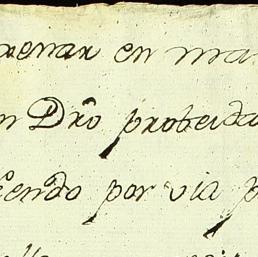 renar en ma
n Dro̅ probeida
endo por via p